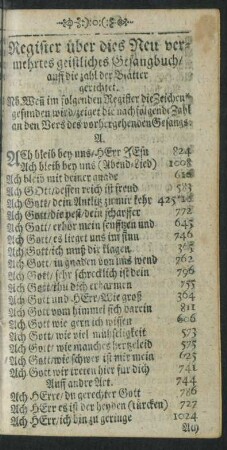 Register über dies Neu ver-
mehrtes geistliches Gesangbuch/
auff die zahl der Blätter
gerichtet.
Nb. Weñ im folgenden Register die Zeichen
gefunden wird/zeiget die nachfolgende Zahl
an den Vers des vorhergehenden Gesangs.
A.
ACh bleib bey uns/HErr JEsu 824
Ach bleib bey uns (Abend-Lied) 1008
Ach bleib mit deiner gnade 616
Ach GOtt/dessen reich ist freud 583
Ach Gott/dein Antlitz zu mir kehr 425
Ach Gott/die pest/dein scharffer 772
Ach Gott/erhör mein seufftzen und 645
Ach Gott/es lieget uns im sinn 746
Ach Gott/ich muß dir klagen 365
Ach Gott/in gnaden von uns wend 762
Ach Gott/sehr schrecklich ist dein 796
Ach Gott/thu dich erbarmen 755
Ach Gott und HErr/Wie groß 364
Ach Gott vom himmel sieh darein 811
Ach Gott/wie gern ich wissen 606
Ach Gott/wie viel mühseligkeit 573
Ach Gott/wie manches hertzeleid 575
Ach Gott/wie schwer ist mir mein 625
Ach Gott wir treten hier für dich 741
Auff andre Art. 744
Ach HErre/du gerechter Gott 786
Ach HErr es ist der heyden (türcken) 727
Ach HErr/ich bin zu geringe 1024